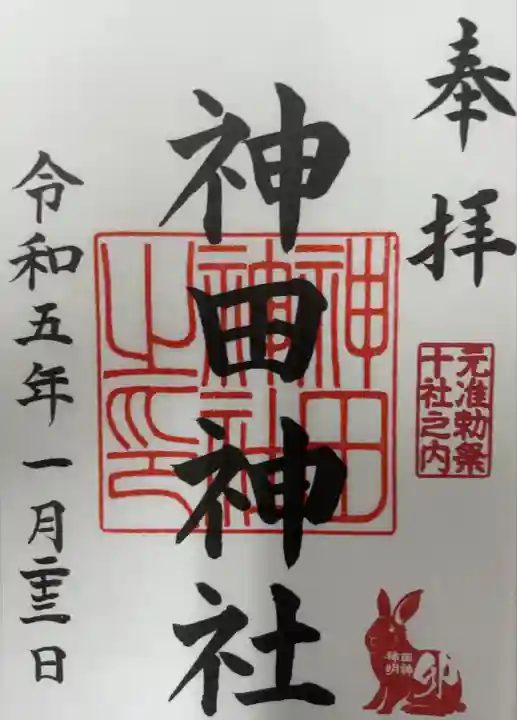 奉拝
元准勅祭
十社之内
神田神社
神田
神社
之印
神田
明神
卯
令和五年一月二十三日